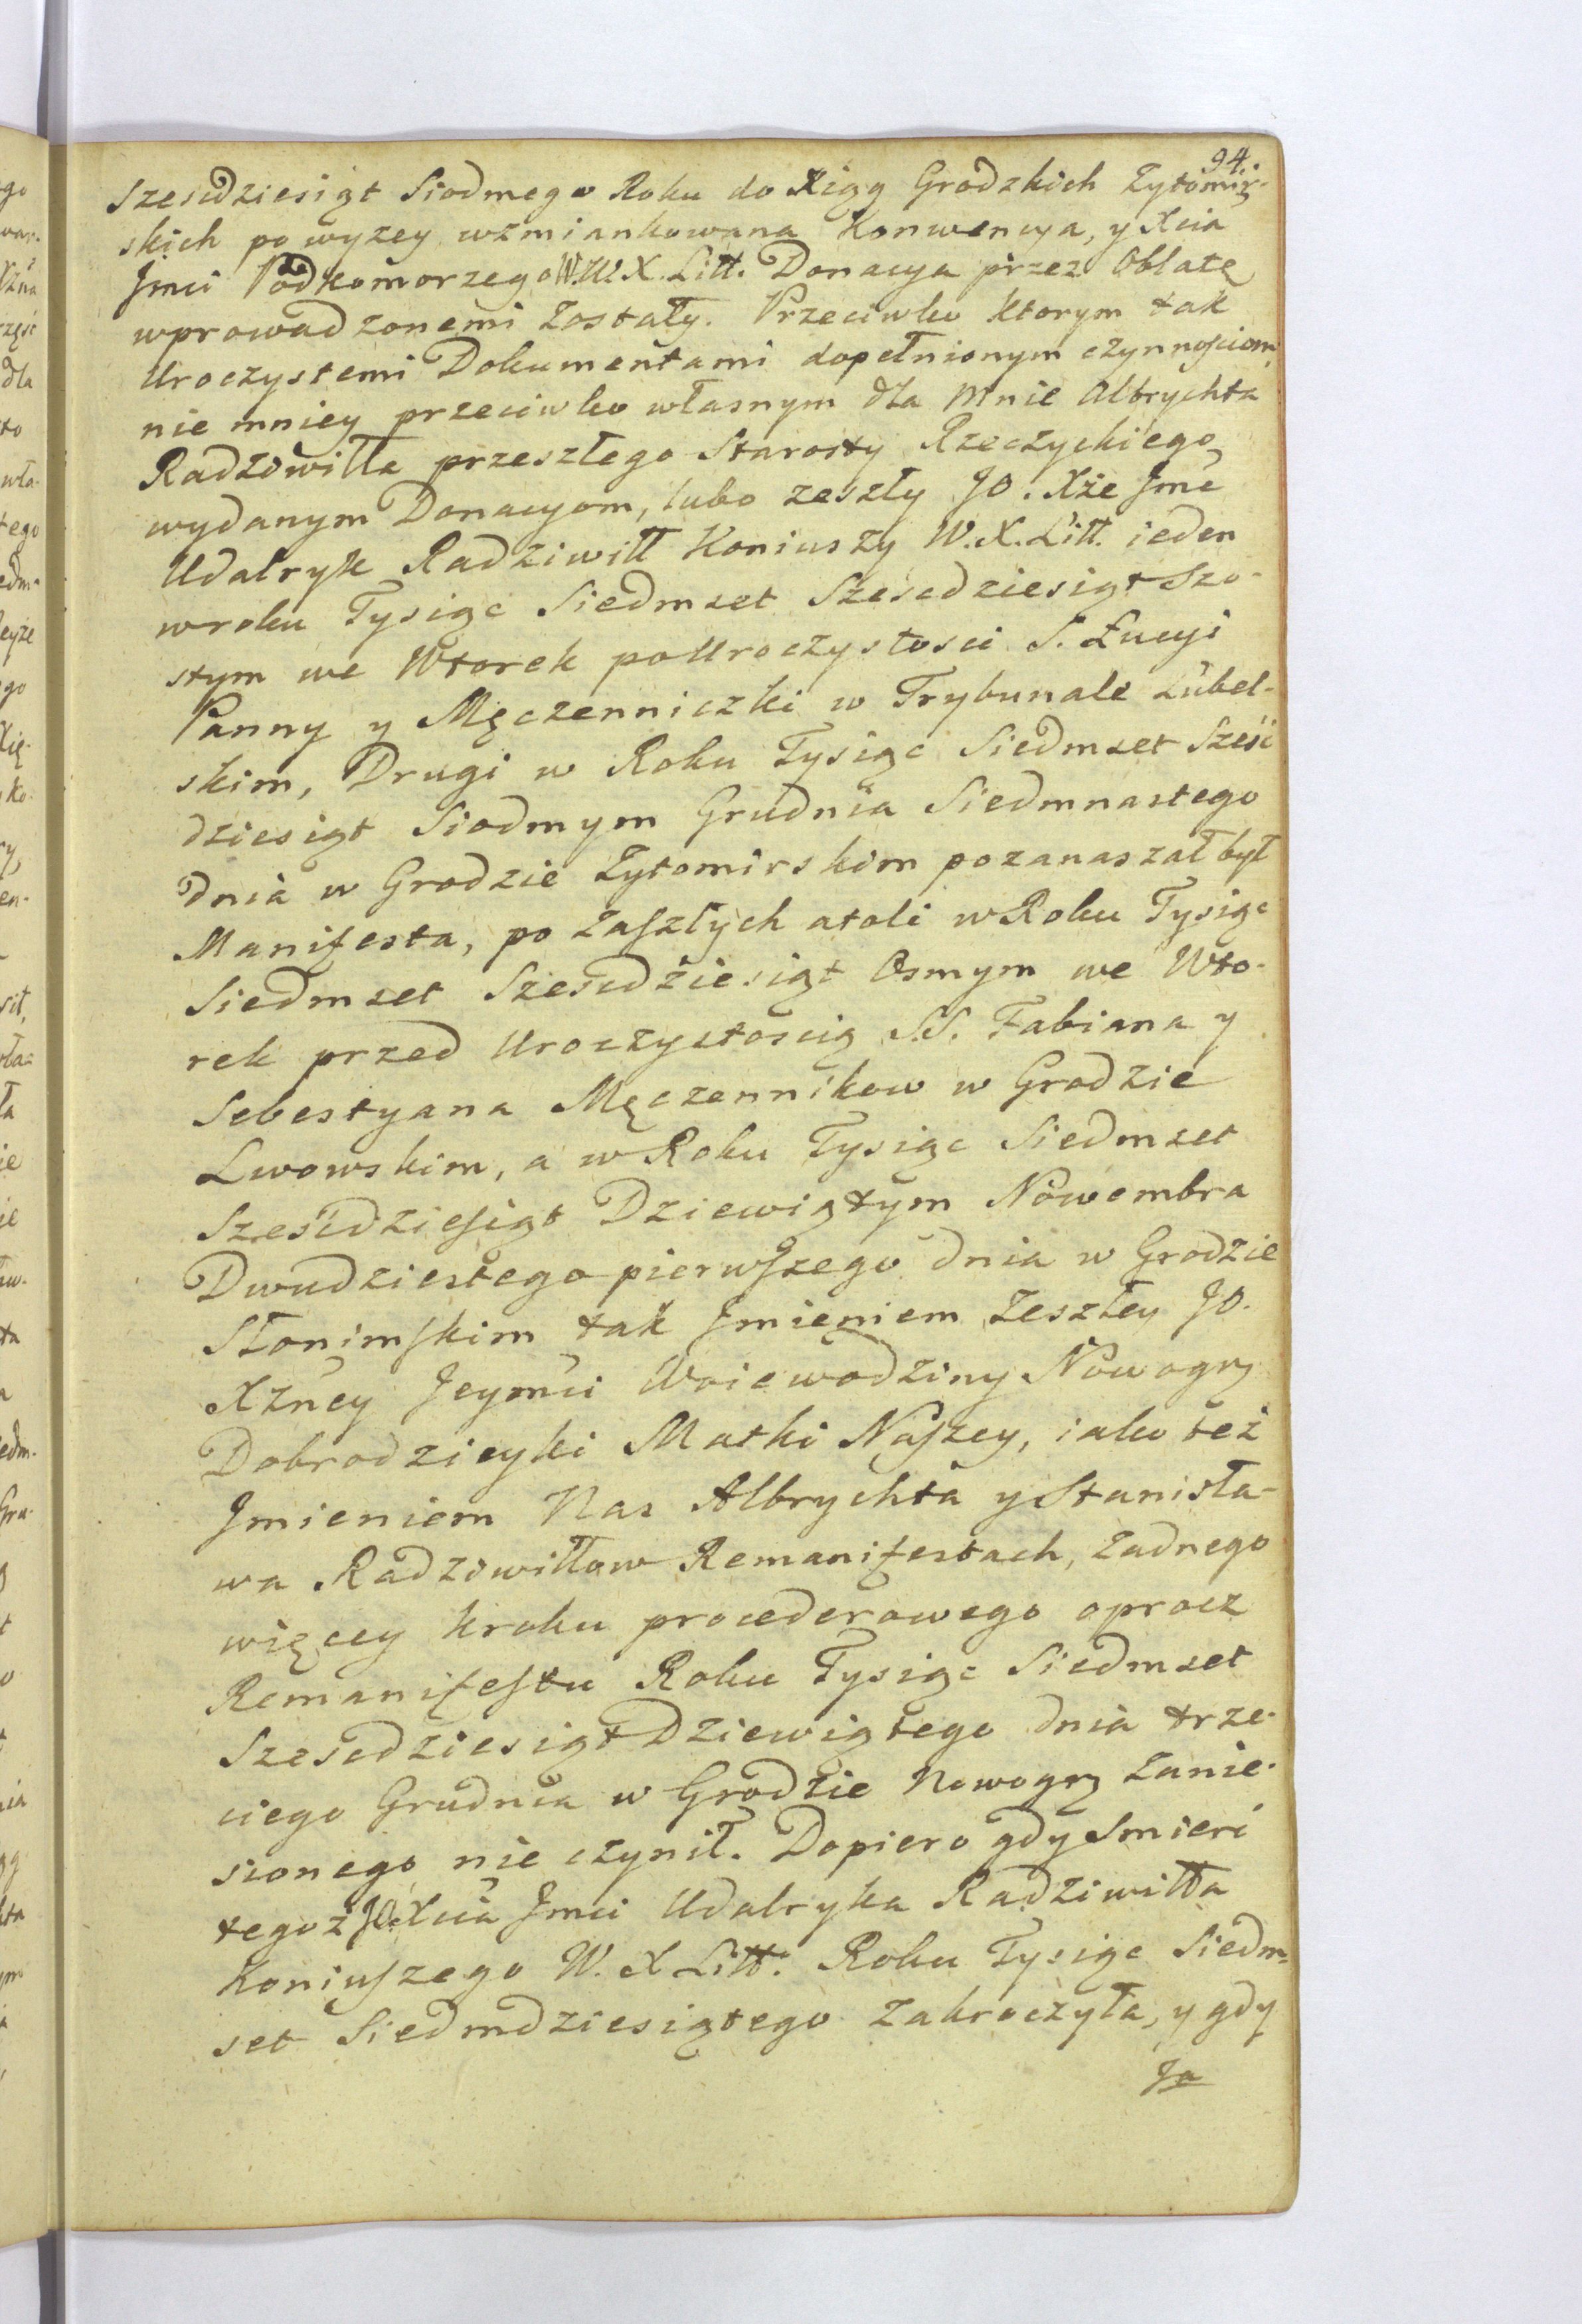 94.
Szescdziesiąt Siodmego Roku do Xiąg Grodzkich Zytomir-
skich powyzey wzmiankowana Konwencya, y Xcia
Jmci Podkomorzego W. X. Litt. Donacya przez Oblatę
wprowadzonemi Zostały. Przeciwko ktorym tak
Uroczystemi Dokumentami dopełnionym czynnosciom
nie mniey przeciwko własnym dla mnie Albrychta
Radziwiłła przeszłego Starosty Rzeczyckiego
wydanym Donacyom, lubo zeszły JO. Xże Jmć
Udalryk Radziwiłł Koniuszy W. X. Litt. ieden
w roku Tysiąc Siedmset Szescdziesiąt Szo-
stym we Wtorek po Uroczystosci S. Łucyi
Panny y Męczenniczki w Trybunale Lubel-
skim, Drugi w Roku Tysiąc Siedmset Sześć
dziesiąt Siodmym Grudnia Siedmnastego
Dnia w Grodzie Zytomirskim pozanaszał był
Manifesta, po Zaszłych atoli w Roku Tysiąc
Siedmset Szescdziesiąt Osmym we Wto-
rek przed Uroczystoscią S.S. Fabiana y
Sebestyana Męczennikow w Grodzie
Lwowskim, a w Roku Tysiąc Siedmset
Szescdziesiąt Dziewiątym Nowembra
Dwudziestego pierwszego dnia w Grodzie
Słonimskim tak Jmieniem Zeszłey JO.
Xżney Jeymci Woiewodziny Nowogrz
Dobrodzieyki Matki Naszey, iako też
Jmieniem Nas Albrychta y Stanisła-
wa Radziwiłłow Remanifestach, żadnego
więcey kroku procederowego oprocz
Remanifestu Roku Tysiąc Siedmset
Szescdziesiąt Dziewiątego dnia trze-
ciego Grudnia w Grodzie Nowogrz Zanie-
sionego nie czynił. Dopiero gdy Smierć
tegoż JO. Xcia Jmci Udalryka Radziwiłła
Koniuszego W. X Litt. Roku Tysiąc Siedm-
set Siedmdziesiątego Zakroczyła, y gdy
Ja